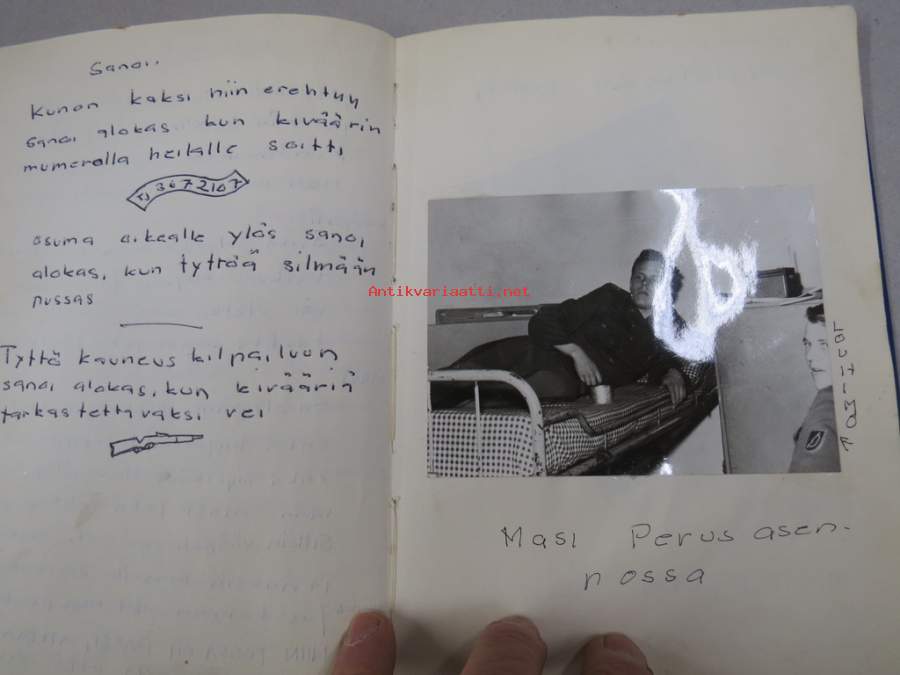 Sanoi..
Kunon kaksi niin erehtyy
sanoi alokas kun kiväärin
numerolla heilalle soitti
3672107
osuma oikealle ylös sanoi
alokas, kun tyttöä silmään
pussas
Tyttö kauneus kilpailuun
sanoi alokas, kun kivääriä
tarkastettavaksi vei
Antikvariaatti.net
Masi Perus asen-
nossa